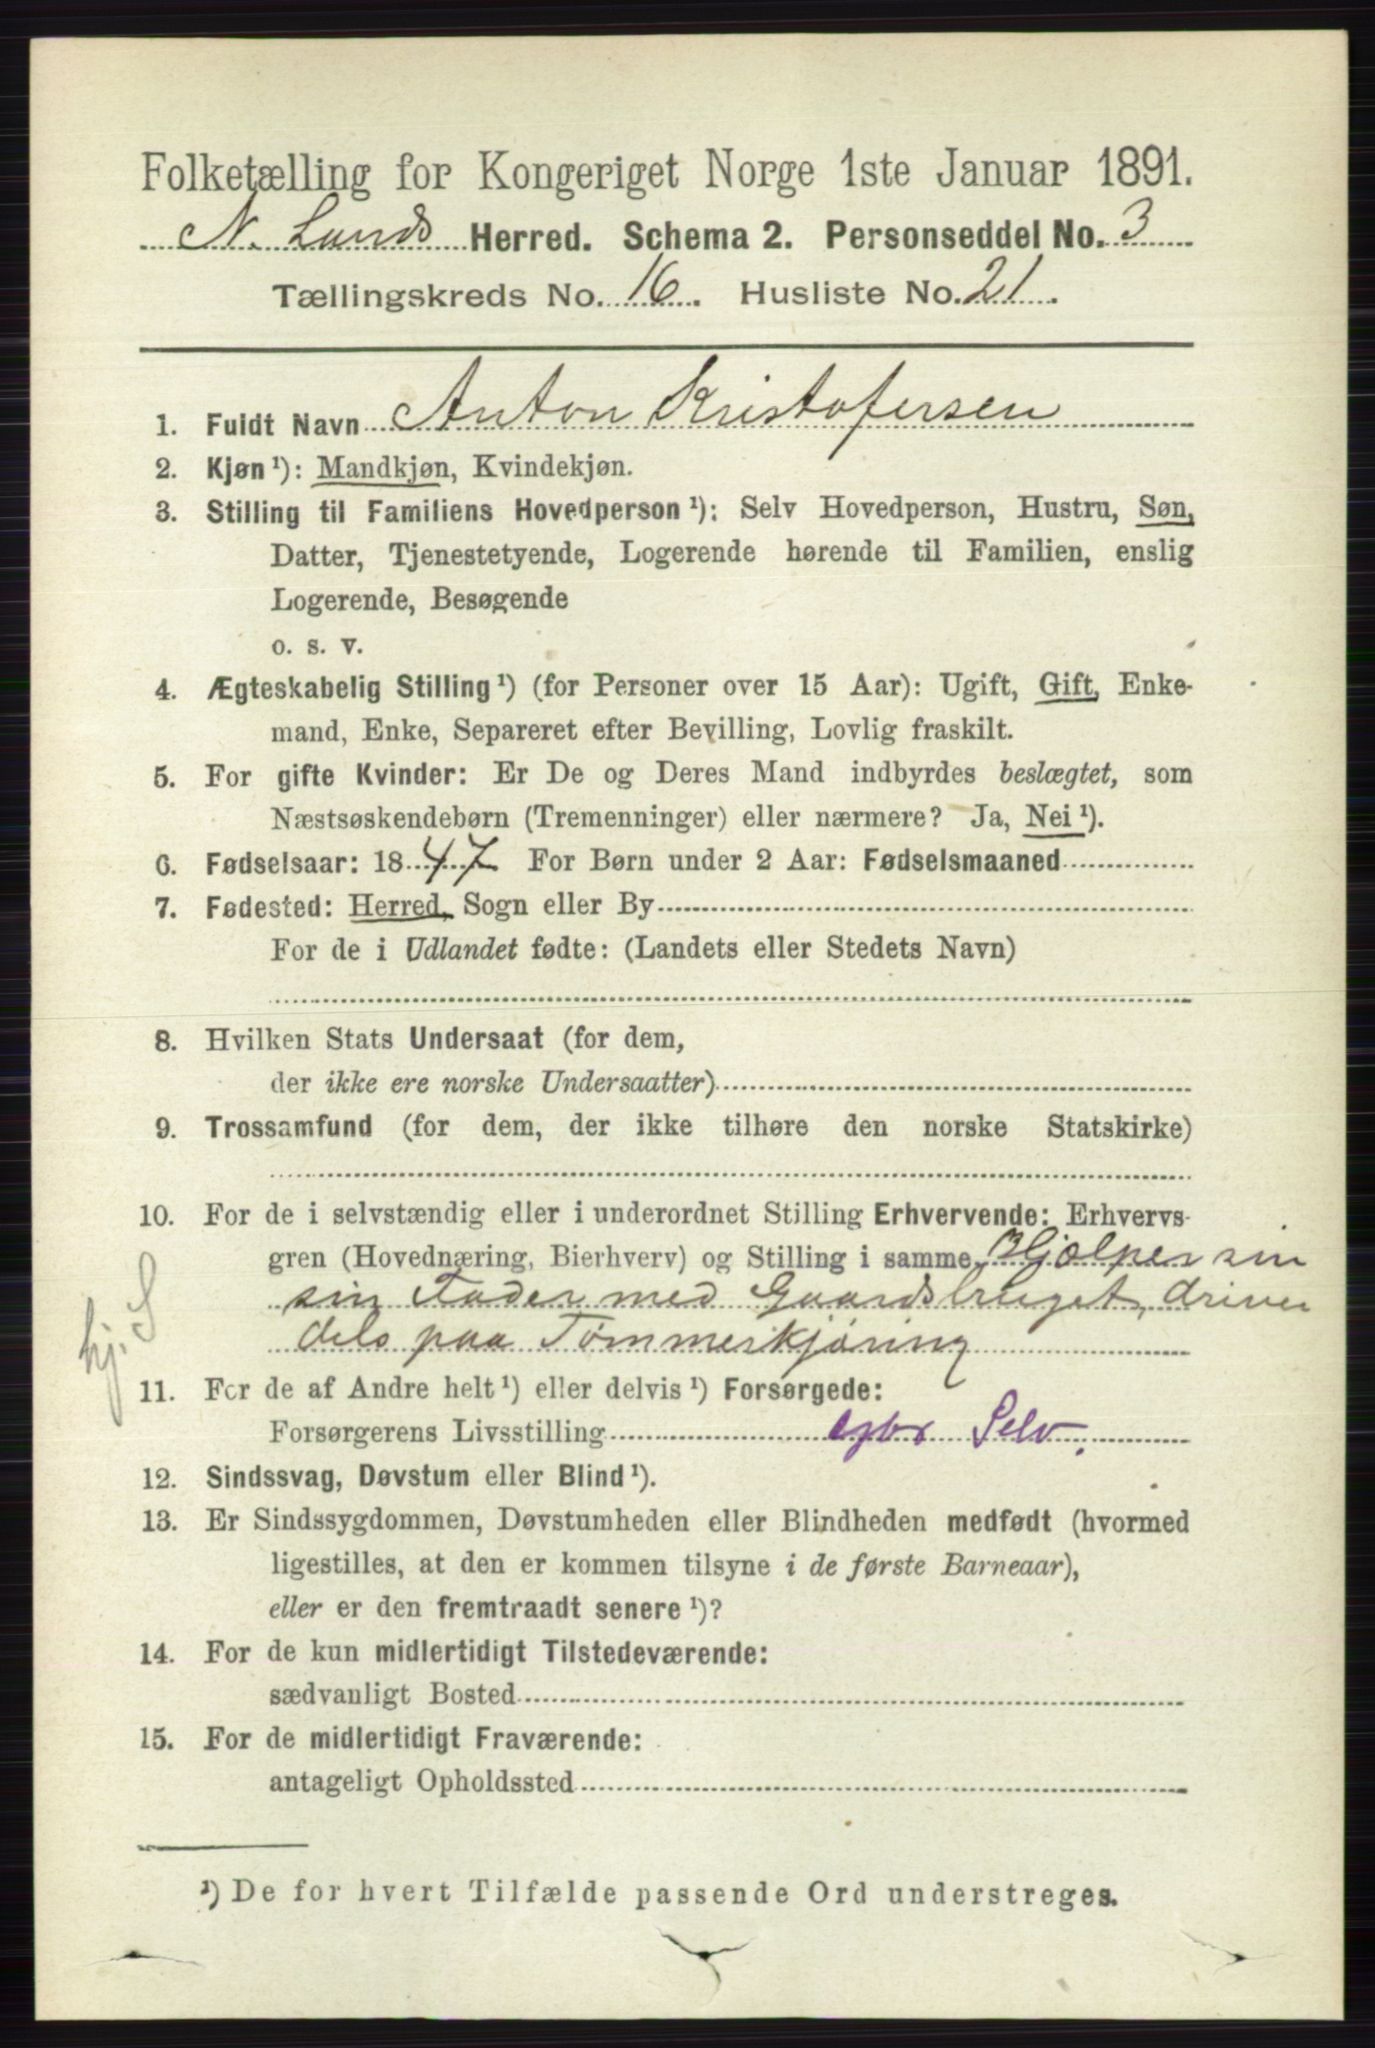 Folketælling for Kongeriget Norge 1ste Januar 1891.
N. Lands Herred. Schema 2. Personseddel No. 3
Tællingskreds No. 16. Husliste No. 21.
1. Fuldt Navn Anton Kristofersen
2. Kjøn ¹): Mandkjøn, Kvindekjøn.
3. Stilling til Familiens Hovedperson ¹): Selv Hovedperson, Hustru, Søn,
Datter, Tjenestetyende, Logerende hørende til Familien, enslig
Logerende, Besøgende
o. s. v.
4. Ægteskabelig Stilling ¹) (for Personer over 15 Aar): Ugift, Gift, Enke-
mand, Enke, Separeret efter Bevilling, Lovlig fraskilt.
5. For gifte Kvinder: Er De og Deres Mand indbyrdes beslægtet, som
Næstsøskendebørn (Tremenninger) eller nærmere? Ja, Nei ¹).
6. Fødselsaar: 1847 For Børn under 2 Aar: Fødselsmaaned
7. Fødested: Herred, Sogn eller By
For de i Udlandet fødte: (Landets eller Stedets Navn)
8. Hvilken Stats Undersaat (for dem,
der ikke ere norske Undersaatter)
9. Trossamfund (for dem, der ikke tilhøre den norske Statskirke)
10. For de i selvstændig eller i underordnet Stilling Erhvervende: Erhvervs-
gren (Hovednæring, Bierhverv) og Stilling i samme Hjælper sin
sin Fader med Gaardsbruget, driver
dels paa Tømmerkjøring
hj. S
11. For de af Andre helt ¹) eller delvis ¹) Forsørgede:
Forsørgerens Livsstilling Selv.
12. Sindssvag, Døvstum eller Blind ¹).
13. Er Sindssygdommen, Døvstumheden eller Blindheden medfødt (hvormed
ligestilles, at den er kommen tilsyne i de første Barneaar),
eller er den fremtraadt senere ¹)?
14. For de kun midlertidigt Tilstedeværende:
sædvanligt Bosted
15. For de midlertidigt Fraværende:
antageligt Opholdssted
¹) De for hvert Tilfælde passende Ord understreges.